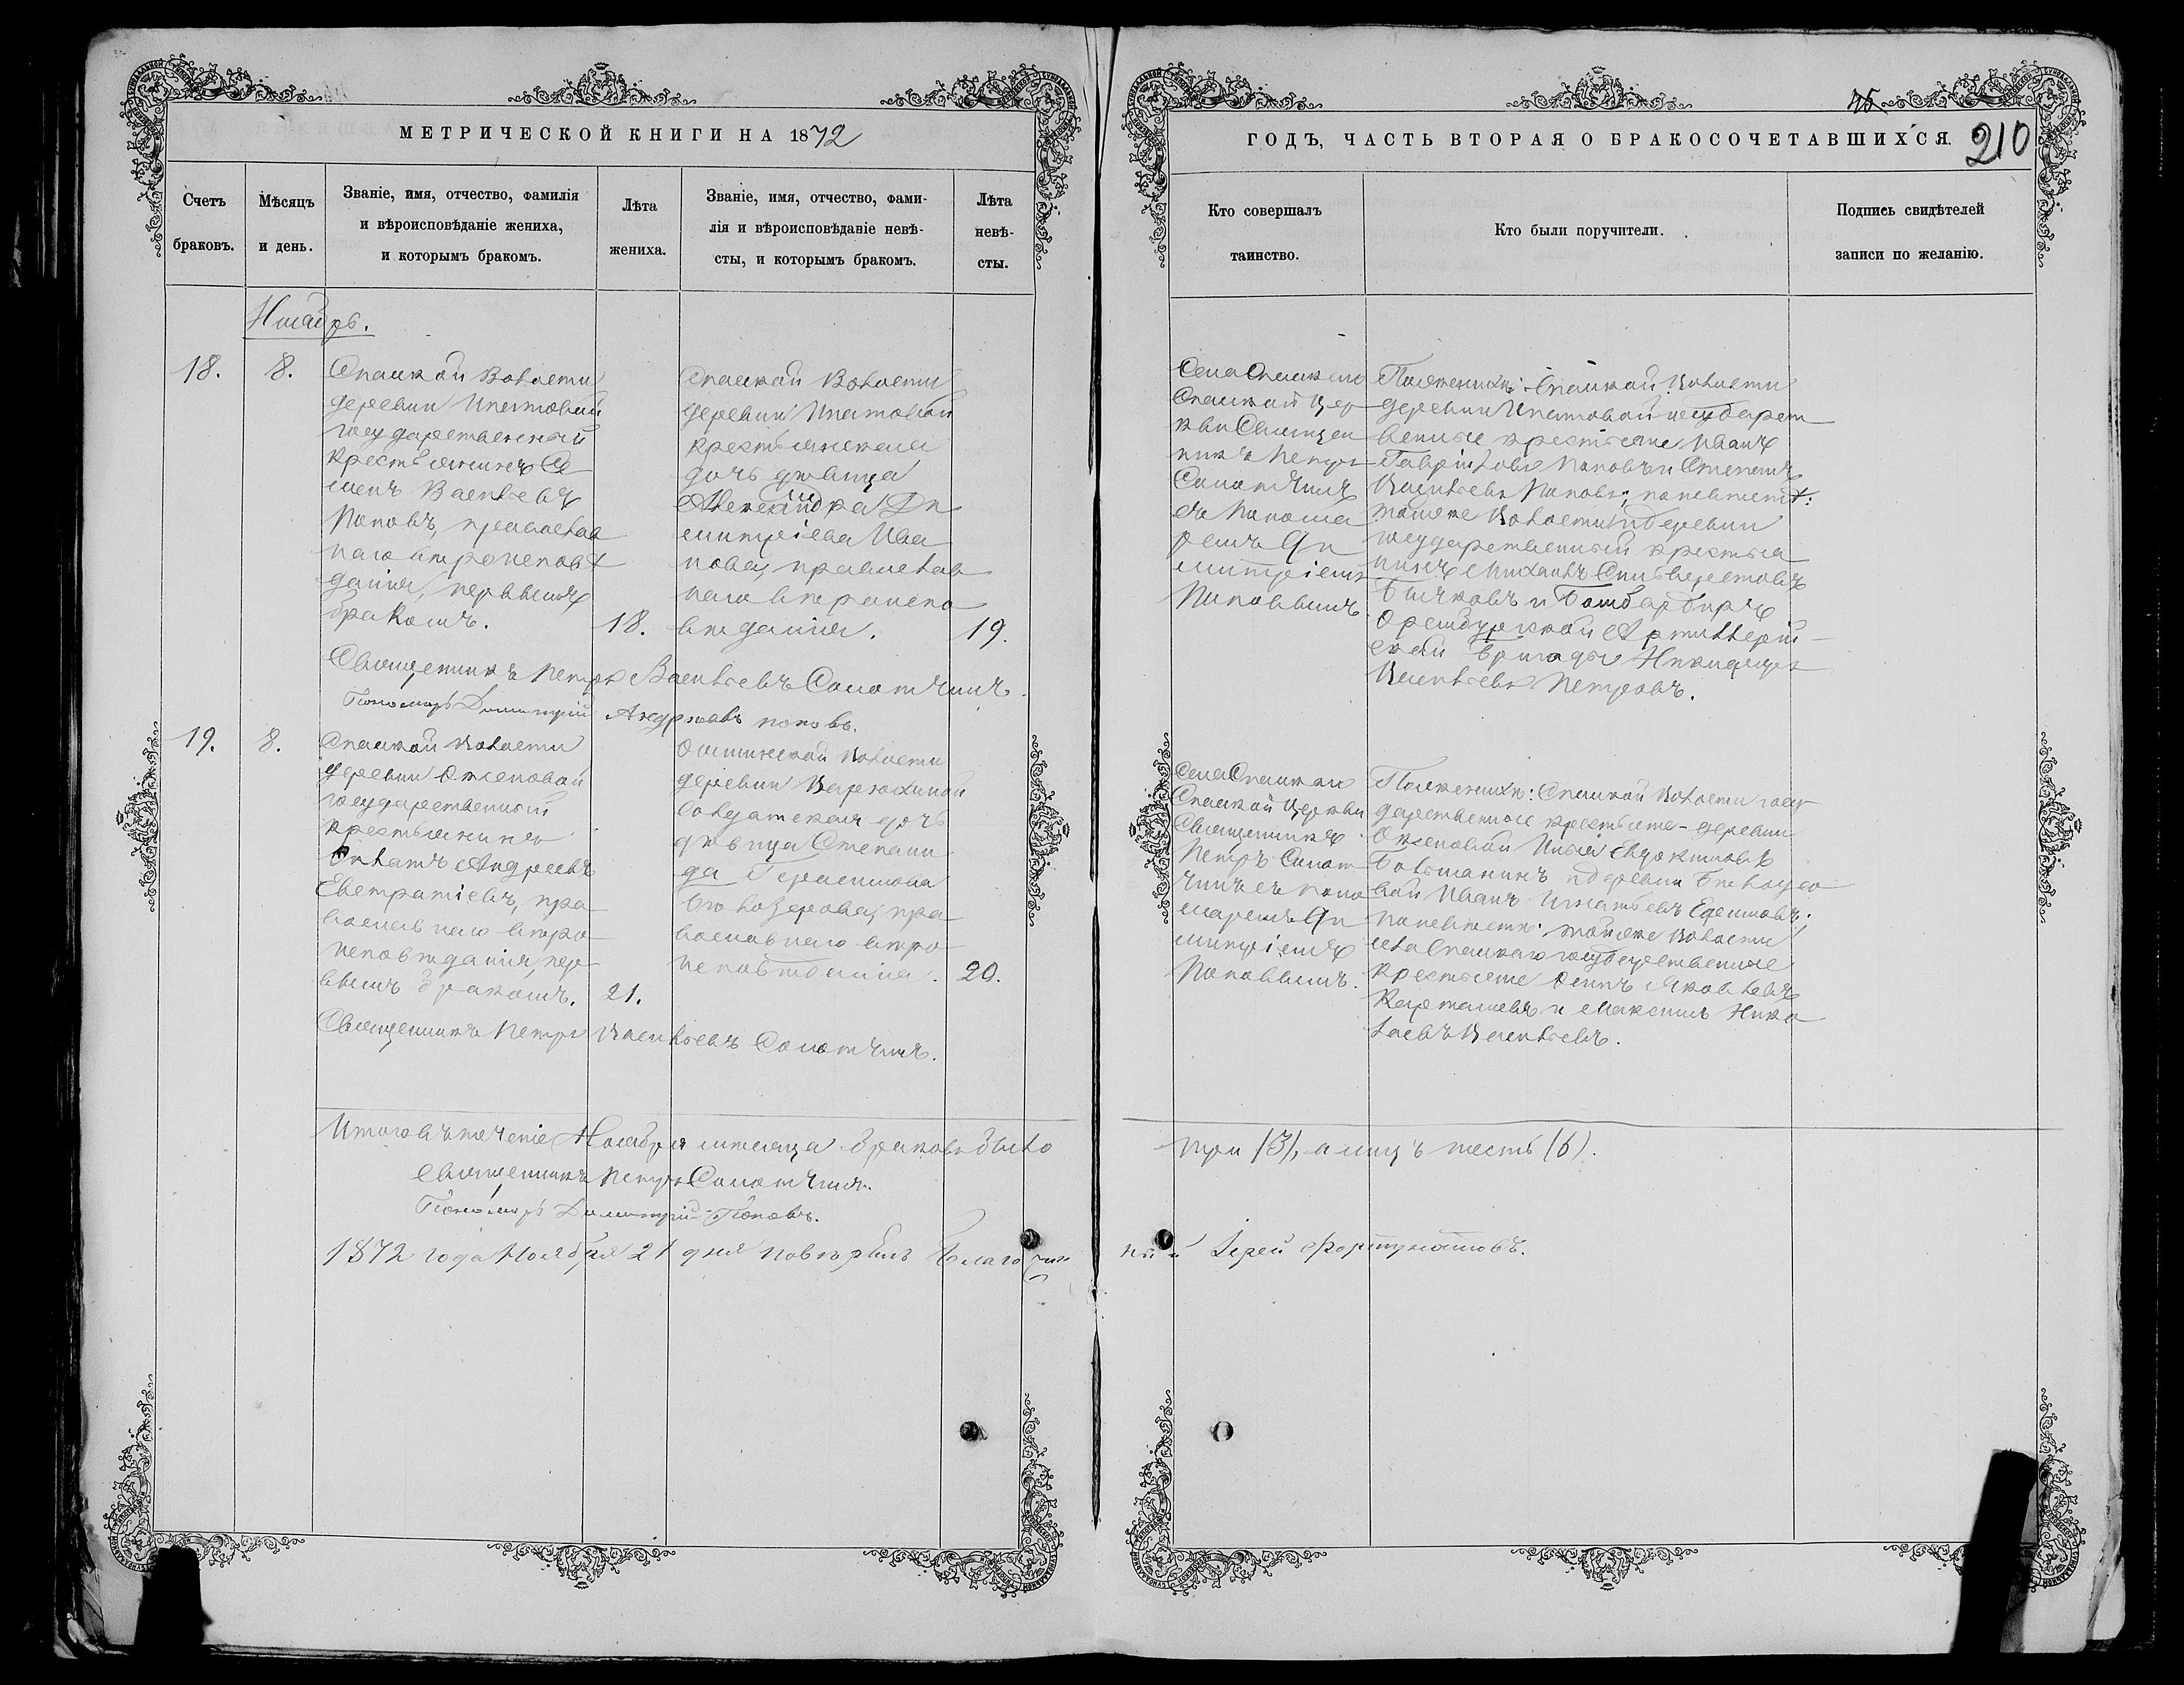 МЕТРИЧЕСКОЙ КНИГИ НА 1872
ГОДЪ, ЧАСТЬ ВТОРАЯ О БРАКОСОЧЕТАВШИХСЯ.
210
Счетъ браковъ.
Мѣсяцъ и день.
Званіе, имя, отчество, фамилія
и вѣроисповѣданіе жениха,
и которымъ бракомъ.
Лѣта жениха.
Званіе, имя, отчество, фами-
лія и вѣроисповѣданіе невѣ-
сты, и которымъ бракомъ.
Лѣта невѣ-
сты.
Кто совершалъ
таинство.
Кто были поручители.
Подпись свидѣтелей
записи по желанію.
Ноябрь.
18.
8.
Спаской Волости
деревни Ипатовой
государственный
крестьянинъ Се
менъ Васильевъ
Поповъ, православ
наго вѣроисповѣ
данія, первымъ
бракомъ.
18.
Спаской Волости
деревни Ипатовой
крестьянская
дочь дѣвица
Александра Ди
митріева Ива
нова, православ
наго вѣроиспо
вѣданія.
19.
Села Спаскаго
Спаской Цер
кви Священ
никъ Петръ
съ Понома
ремъ Ди
митріемъ
Поповымъ.
По женихѣ: Спаской Волости
деревни Ипатовой государст
венные крестьяне Иванъ
Гавріиловъ Поповъ и Степанъ
Васильевъ Поповъ; по невѣстѣ:
тойже Волости и деревни
государственный крестья
нинъ Михаилъ
Бычковъ и Бомбардиръ
Оренбургской Артиллерій
ской бригады
Васильевъ Петровъ.
Священникъ Петръ Васильевъ
Пономарь Димитрій Андреевъ Поповъ.
19.
8.
Спаской Волости
деревни
государственный
крестьянинъ
Андреевъ
Евстратіевъ, пра
вославнаго вѣро
исповѣданія, пер
вымъ бракомъ.
21.
Волости
деревни
солдатская дочь
дѣвица Степани
да Герасимова
Бѣлозерова, пра
вославнаго вѣро
исповѣданія.
20.
Села Спаскаго
Спаской Церкви
Священникъ
Петръ
съ поно
маремъ Ди
митріемъ
Поповымъ.
По женихѣ: Спаской Волости госу
дарственные крестьяне - деревни
Илья Евдокимовъ
и деревни Бѣлозеро
вой Иванъ Игнатьевъ Ефимовъ;
по невѣстѣ: тойже Волости
села Спаскаго государственные
крестьяне Осипъ Яковлевъ
Карташевъ и Максимъ Нико
лаевъ Васильевъ.
Священникъ Петръ Васильевъ
Итого въ теченіе Ноября мѣсяца браковъ было
три (3), а лицъ шесть (6).
Священникъ Петръ
Пономарь Димитрій Поповъ.
1872 года Ноября 21 дня повѣрялъ Благочин
ный Іерей Фортунатовъ.